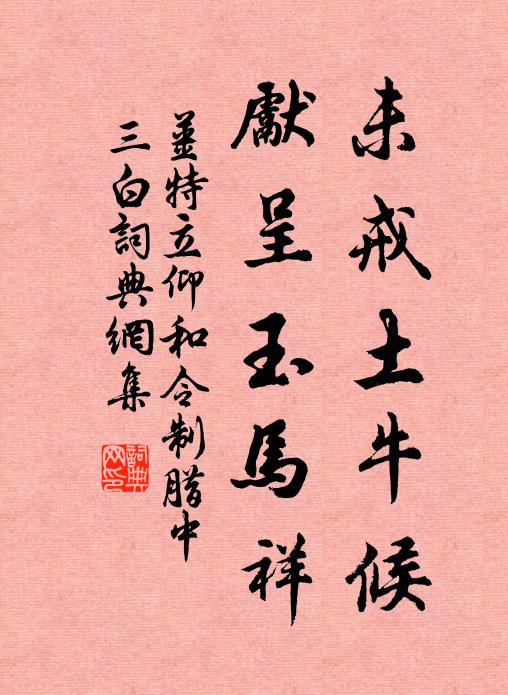 未戒土牛候
獻呈玉馬祥
薑特立仰和令制腊中
三白詞典網集
詞典
网印